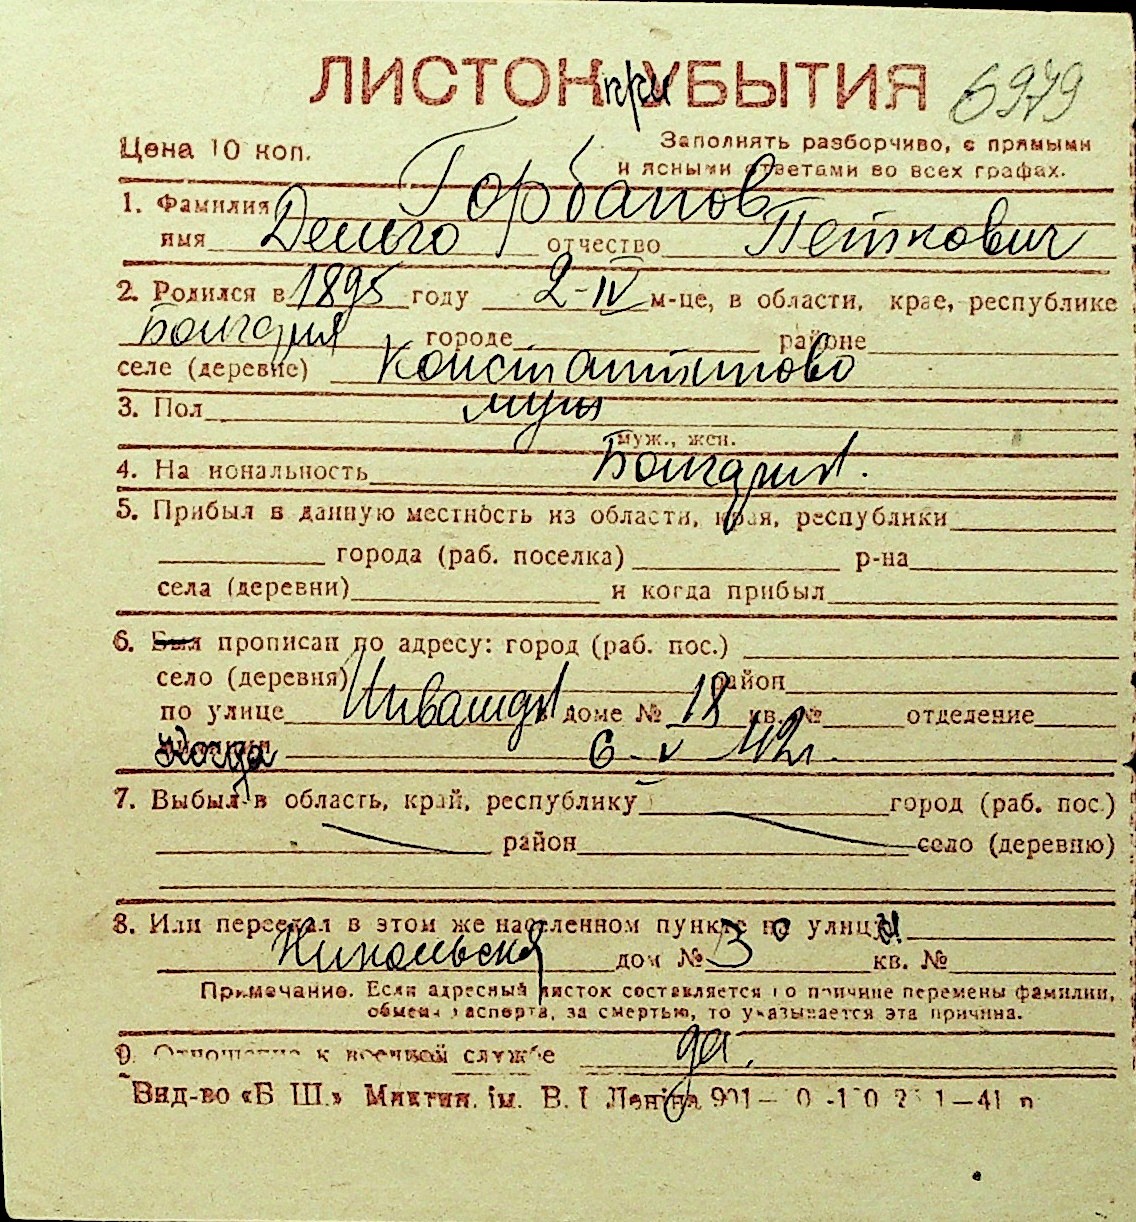 ЛИСТОК при УБЫТИЯ 6979
Цена 10 коп. Заполнять разборчиво, с прямыми
и ясными ответами во всех графах.
1. Фамилия Горбанов
имя Деньго отчество Петкович
2. Родился в 1895 году 2-IV м-це, в области, крае, республике
Болгария городе районе
селе (деревне) Константиново
3. Пол муж
муж., жен.
4. Национальность Болгария.
5. Прибыл в данную местность из области, края, республики
города (раб. поселка) р-на
села (деревни) и когда прибыл
6. Был прописан по адресу: город (раб. пос.)
село (деревня) район
по улице Инвашдя в доме № 18 кв. № отделение
когда 6-V 42г.
7. Выбыл в область, край, республику город (раб. пос.)
район село (деревню)
8. Или переехал в этом же населенном пункте по улицы
Никольская дом № 3 кв. №
Примечание. Если адресный листок составляется по причине перемены фамилии,
обмена паспорта, за смертью, то указывается эта причина.
9. Отношение к военной службе да.
Вид-во «Б. Ш.» Миктип. ім. В. І. Леніна